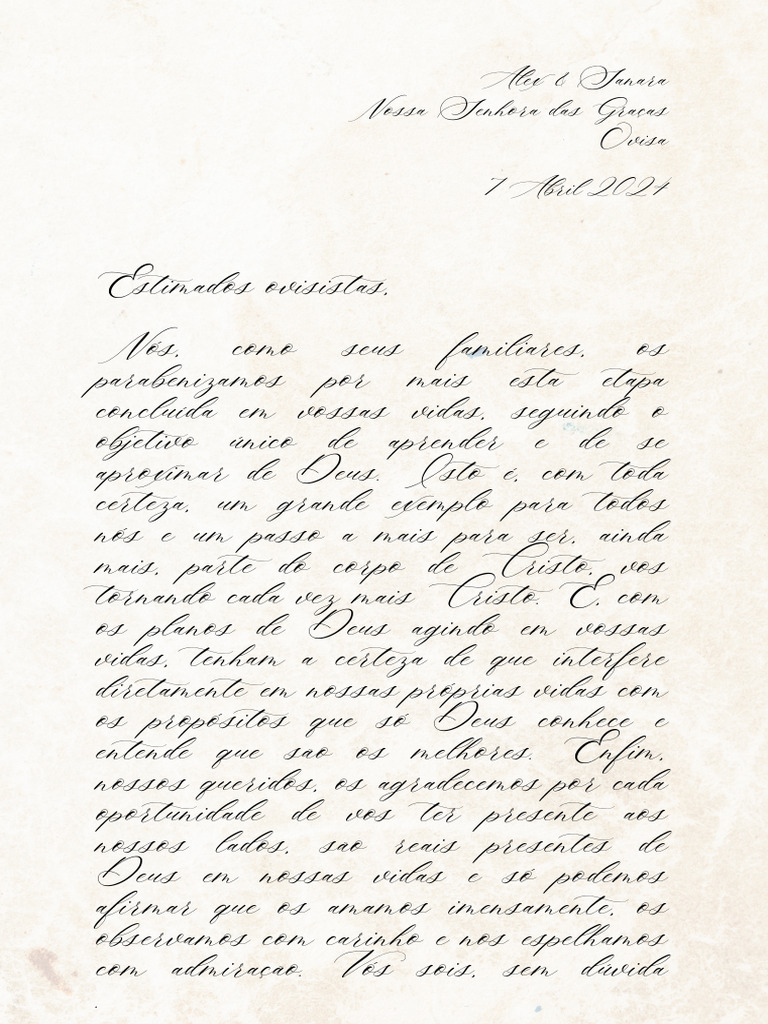 Alex & Sanara
Nossa Senhora das Graças
Ovisa
7 Abril 2024
Estimados ovisistas,
Nós, como seus familiares, os
parabenizamos por mais esta etapa
concluída em vossas vidas, seguindo o
objetivo único de aprender e de se
aproximar de Deus. Isto é, com toda
certeza, um grande exemplo para todos
nós e um passo a mais para ser, ainda
mais, parte do corpo de Cristo, vos
tornando cada vez mais Cristo. E, com
os planos de Deus agindo em vossas
vidas, tenham a certeza de que interfere
diretamente em nossas próprias vidas com
os propósitos que só Deus conhece e
entende que sao os melhores. Enfim,
nossos queridos, os agradecemos por cada
oportunidade de vos ter presente aos
nossos lados, sao reais presentes de
Deus em nossas vidas e só podemos
afirmar que os amamos imensamente, os
observamos com carinho e nos espelhamos
com admiraçao. Vós sois, sem dúvida
.